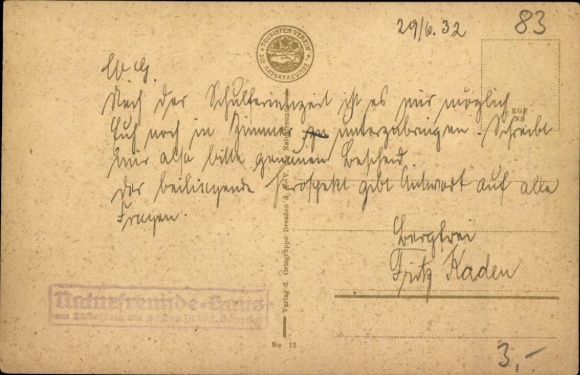 29/6. 32
83
TOURISTEN VEREIN
DIE NATURFREUNDE
W. G.
Nach der Schulferienzeit ist es mir möglich
Euch noch in Zimmer unterzubringen. Schreibt
mir also bitte genauen Bescheid.
Der beiliegende Prospekt gibt Antwort auf alle
Fragen.
Bergfrei
Fritz Kaden
Naturfreunde-Haus
Verlag d. Ortsgruppe Dresden d.
No 12
3,-